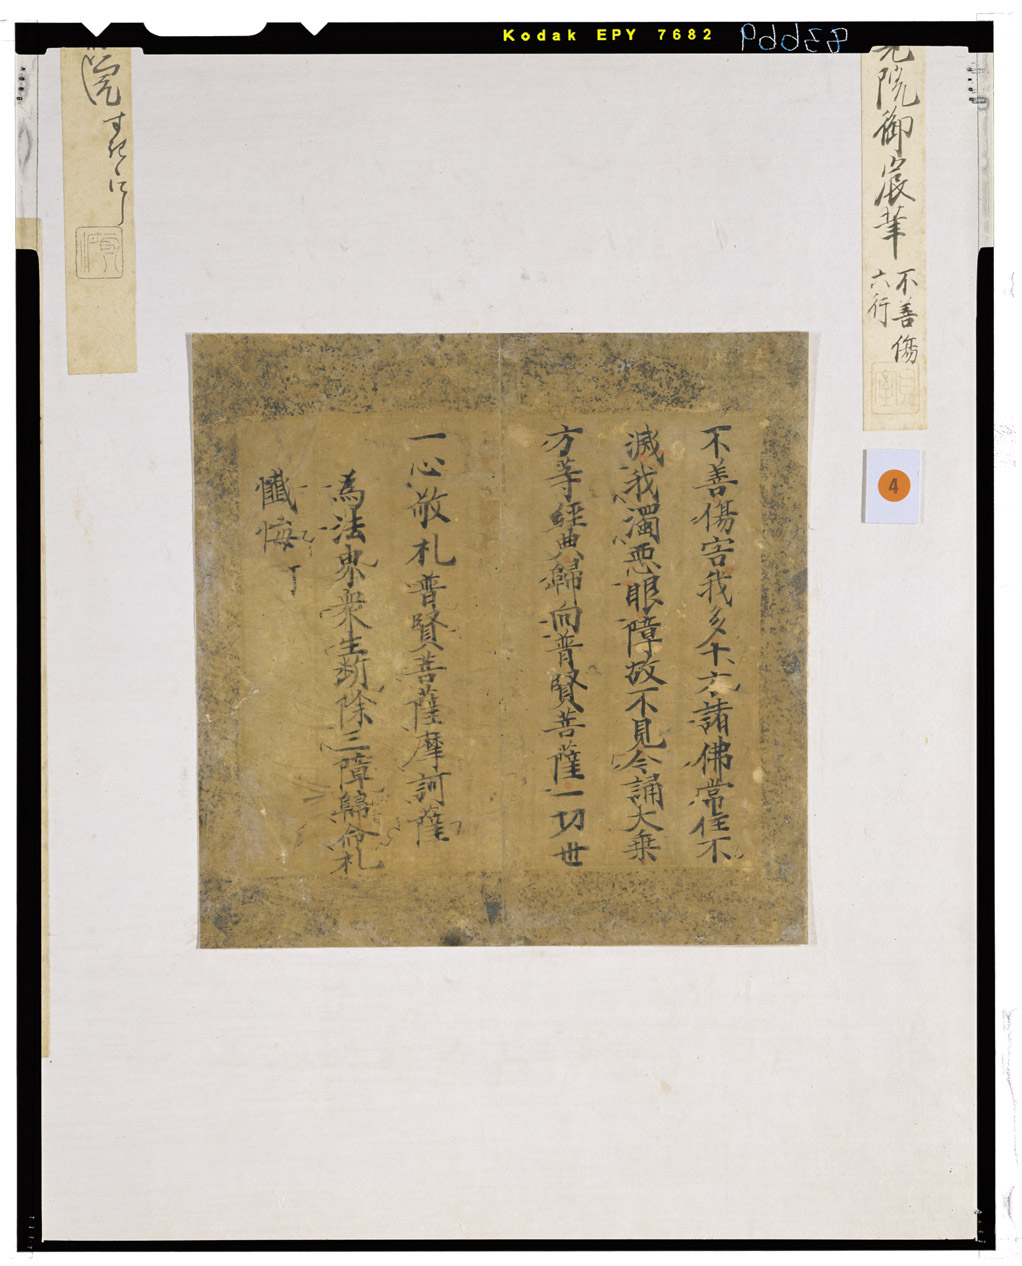 Kodak EPY 7682
83669
院御宸筆
不善傷
六行
4
不善傷害我多今六諸佛常住不
滅我濁惡眼障故不見今誦大乗
方等経典歸向普賢菩薩一切世
一心敬礼普賢菩薩摩訶薩
為法界衆生断除三障歸命礼
懺悔
院